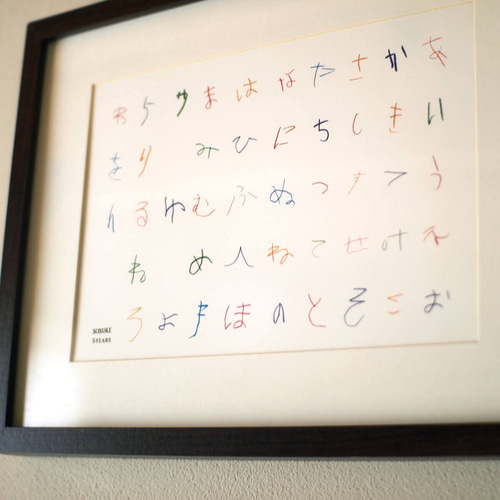 あいうえお
かきくけこ
さしすせそ
たちつてと
なにぬねの
はひふへほ
まみむめも
やゆよ
らりるれろ
わをん
SOSUKE
5YEARS